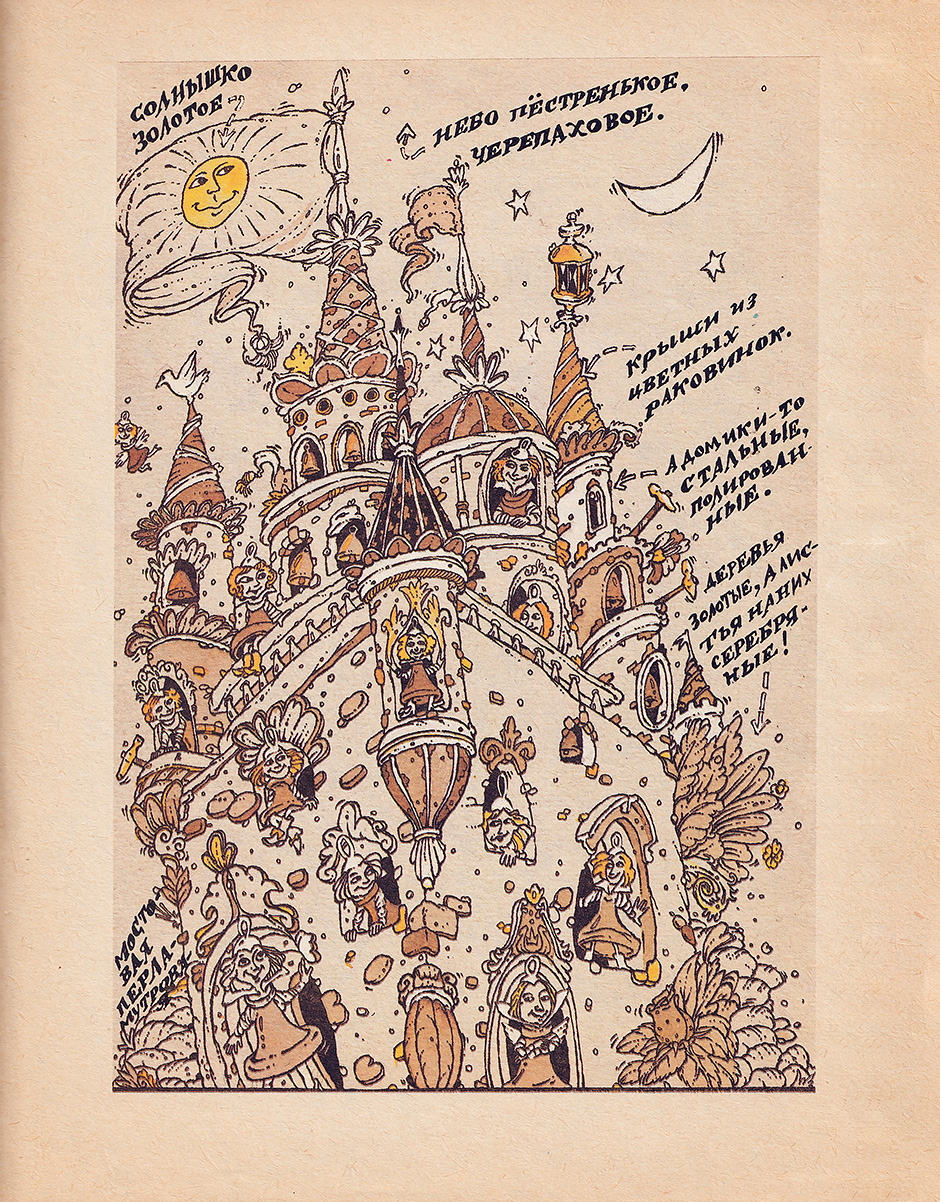 СОЛНЫШКО
ЗОЛОТОЕ
НЕБО ПЁСТРЕНЬКОЕ,
ЧЕРЕПАХОВОЕ.
КРЫШИ ИЗ
ЦВЕТНЫХ
РАКОВИНОК.
А ДОМИКИ-ТО
СТАЛЬНЫЕ,
ПОЛИРОВАН-
НЫЕ.
ДЕРЕВЬЯ
ЗОЛОТЫЕ, А ЛИС-
ТЬЯ НА НИХ
СЕРЕБРЯ-
НЫЕ!
МОСТО
ВАЯ
ПЕРЛА-
МУТРОВА
Я